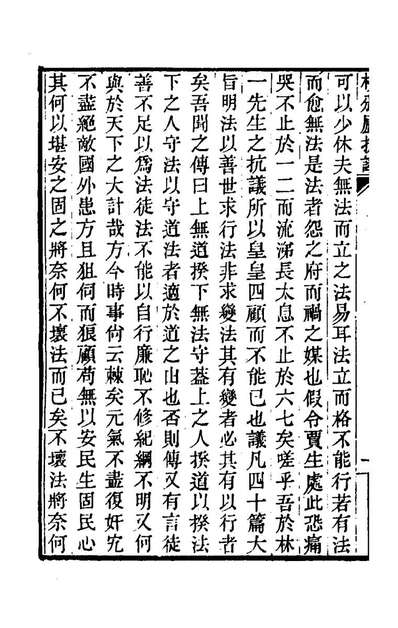 可以少休夫無法而立之法易耳法立而格不能行若有法
而愈無法是法者怨之府而禍之媒也假令賈生處此恐痛
哭不止於一二而流涕長太息不止於六七矣嗟乎吾於林
一先生之抗議所以皇皇四顧而不能已也議凡四十篇大
旨明法以善世求行法非求變法其有變者必其有以行者
矣吾聞之傳曰上無道揆下無法守蓋上之人揆道以揆法
下之人守法以守道法者適於道之山也否則傳又有言徒
善不足以爲法徒法不能以自行廉恥不修紀綱不明又何
與於天下之大計哉方今時事尙云棘矣元氣不盡復奸宄
不盡絕敵國外患方且狙伺而狠顧苟無以安民生固民心
其何以堪安之固之將奈何不壞法而已矣不壞法將奈何